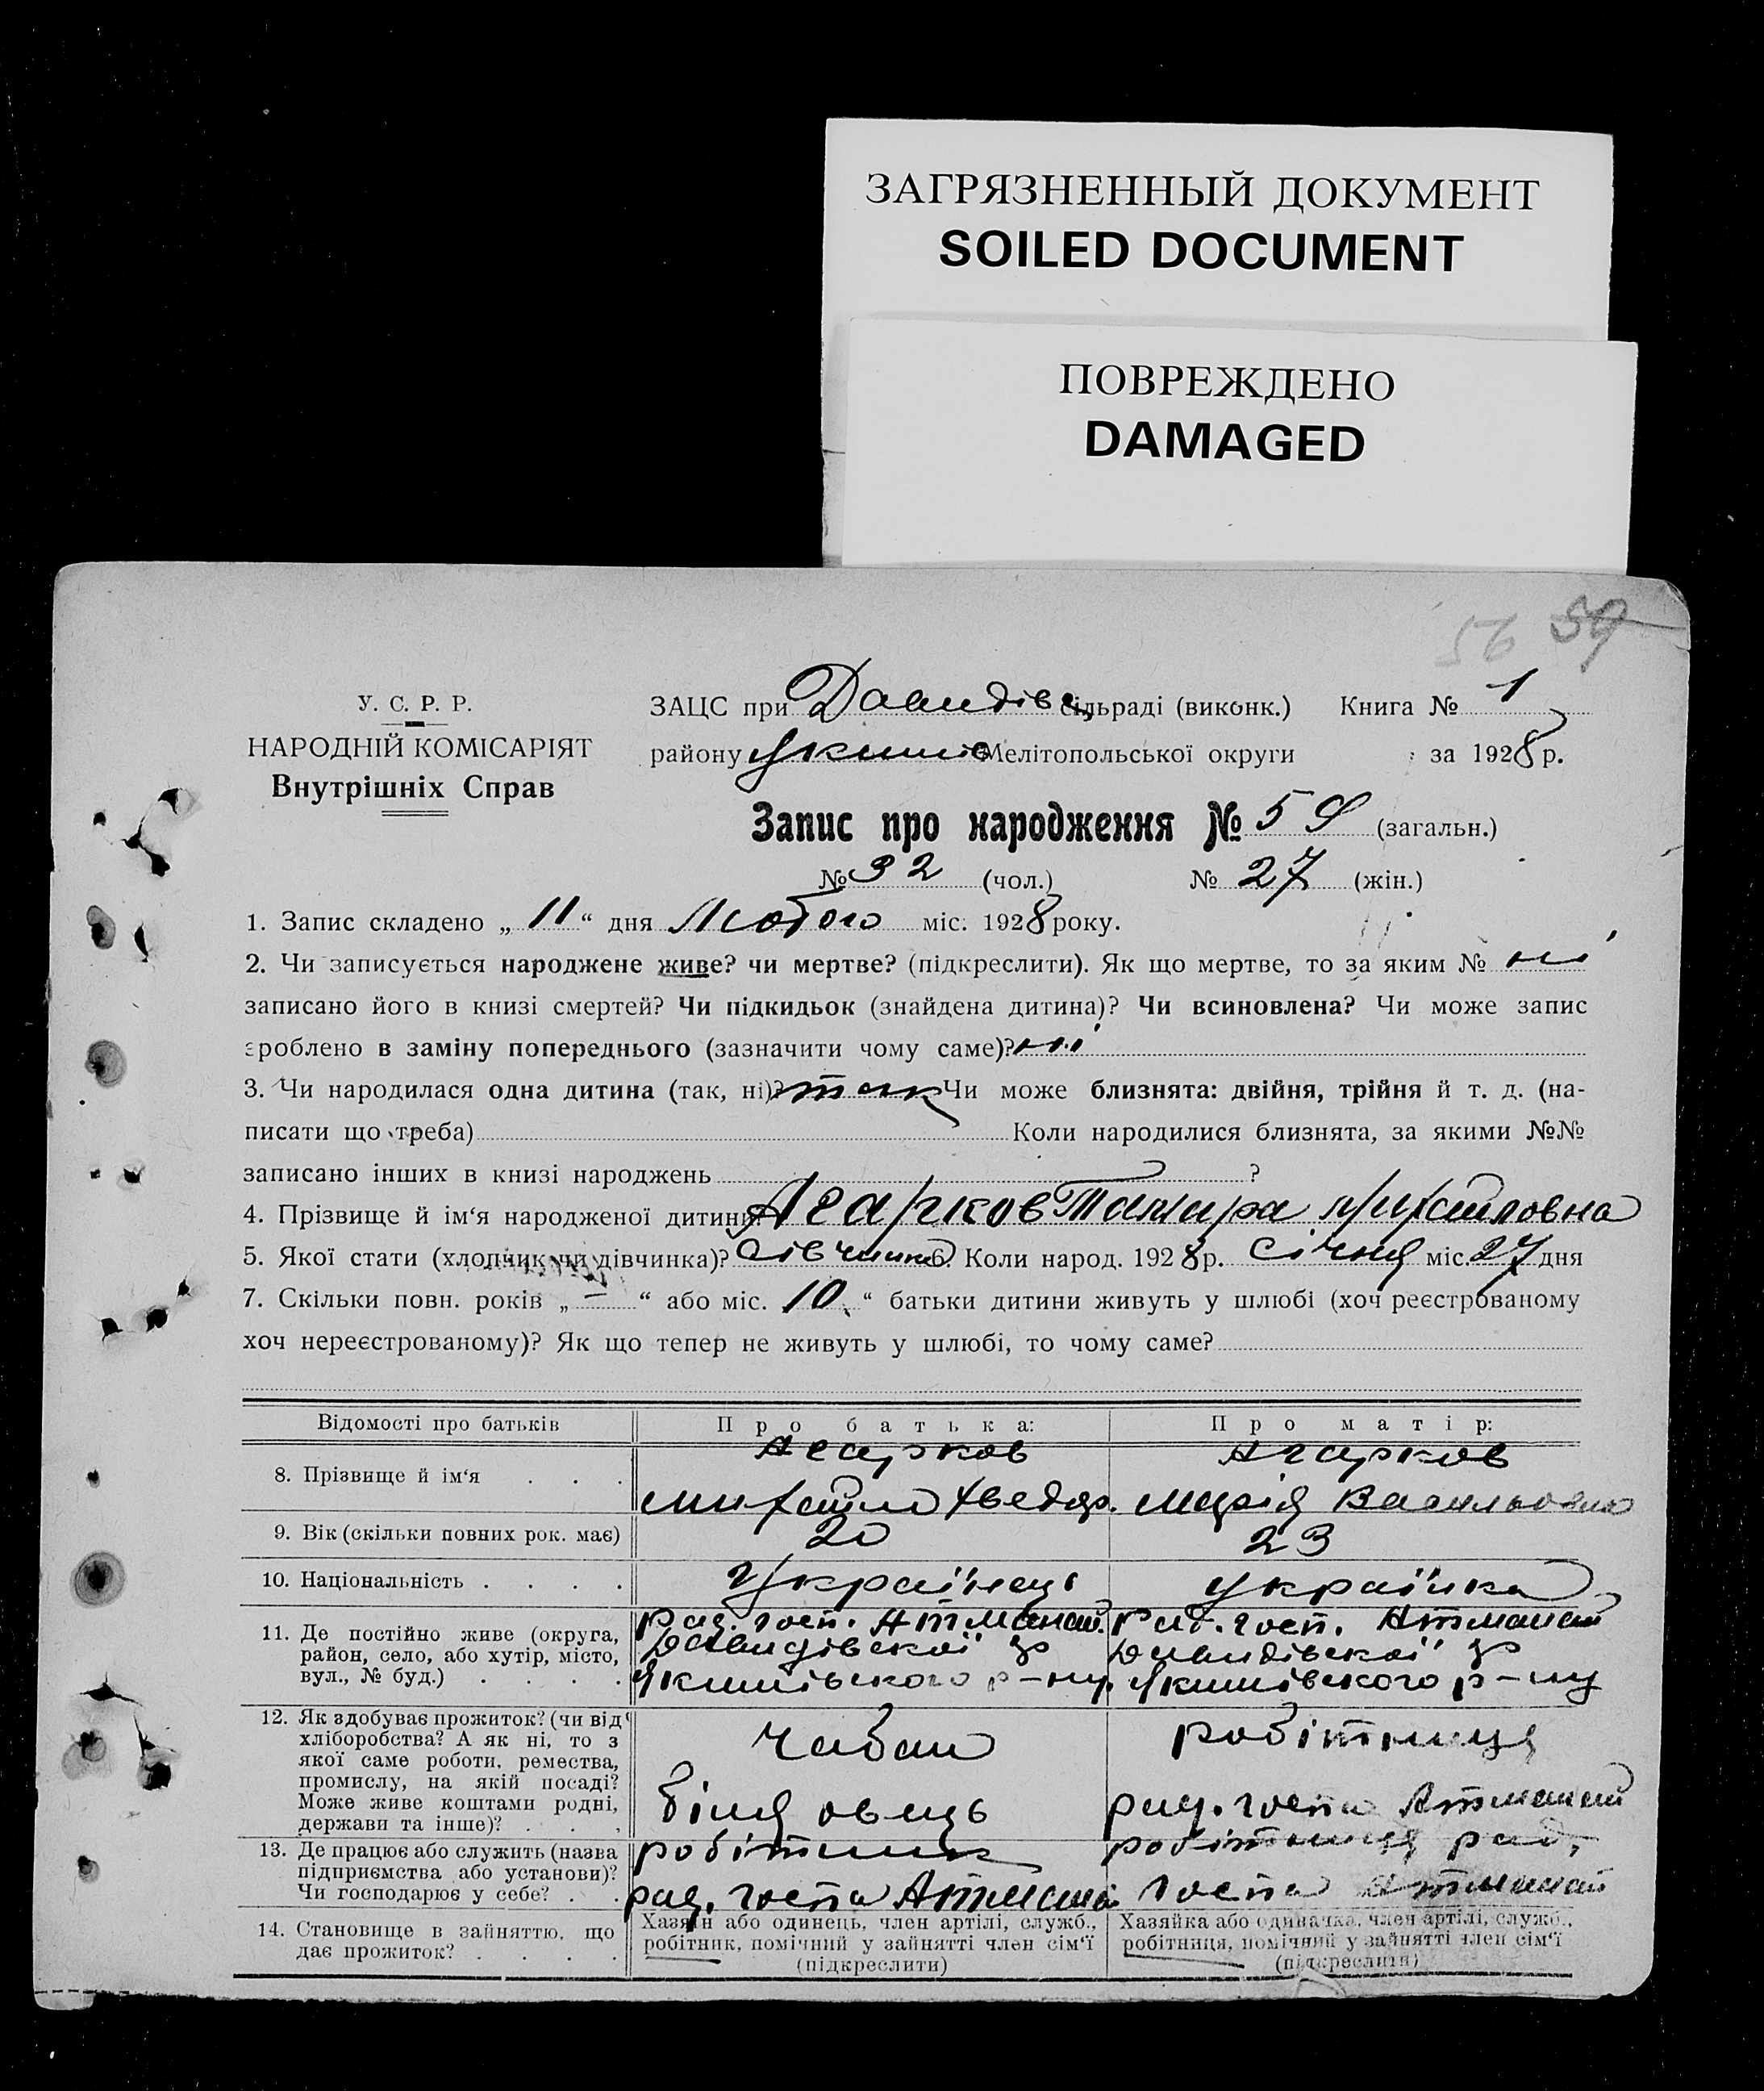 ЗАГРЯЗНЕННЫЙ ДОКУМЕНТ
SOILED DOCUMENT
ПОВРЕЖДЕНО
DAMAGED
56 59
У. С. Р. Р.
НАРОДНІЙ КОМІСАРІЯТ
Внутрішніх Справ
ЗАЦС при Давидівс сільраді (виконк.) Книга № 1
району Якимів Мелітопольської округи за 1928 р.
Запис про народження № 59 (загальн.)
№ 32 (чол.) № 27 (жін.)
1. Запис складено „ 11 “ дня Лютого міс. 1928 року.
2. Чи записується народжене живе? чи мертве? (підкреслити). Як що мертве, то за яким № ні
записано його в книзі смертей? Чи підкидьок (знайдена дитина)? Чи всиновлена? Чи може запис
зроблено в заміну попереднього (зазначити чому саме)? ні
3. Чи народилася одна дитина (так, ні)? так Чи може близнята: двійня, трійня й т. д. (на-
писати що треба) Коли народилися близнята, за якими №№
записано інших в книзі народжень ?
4. Прізвище й ім‘я народженої дитини: Агарков Тамара Михайловна
5. Якої стати (хлопчик чи дівчинка)? Дівчинка 6. Коли народ. 1928 р. Січня міс. 27 дня
7. Скільки повн. років „ — “ або міс. 10 “ батьки дитини живуть у шлюбі (хоч реєстрованому
хоч нереєстрованому)? Як що тепер не живуть у шлюбі, то чому саме?
Відомості про батьків Про батька: Про матір:
8. Прізвище й ім‘я . . . Агарков Агарков
Михайло Хведор. Марія Васильовна
9. Вік (скільки повних рок. має) 20 23
10. Національність . . . . Українець українка
11. Де постійно живе (округа, район, село, або хутір, місто, вул., № буд.) . . . .
Рад. госп. Атманай. Рад. госп. Атманай
Давидівської с/р Давидівської с/р
Якимівського р-ну Якимівського р-ну
12. Як здобуває прожиток? (чи від хліборобства? А як ні, то з якої саме роботи, ремества, промислу, на якій посаді? Може живе коштами родні, держави та інше)? . . .
Чабан робітниця
біля овець рад. госпа Атманай
13. Де працює або служить (назва підприємства або установи)? Чи господарює у себе? . .
робітник робітниця рад.
рад. госпа Атманай госпа Атманай
14. Становище в зайняттю, що дає прожиток? . . . .
Хазяїн або одинець, член артілі, служб., Хазяйка або одиначка, член артілі, служб.,
робітник, помічний у зайнятті член сім‘ї робітниця, помічний у зайнятті член сім‘ї
(підкреслити) (підкреслити)